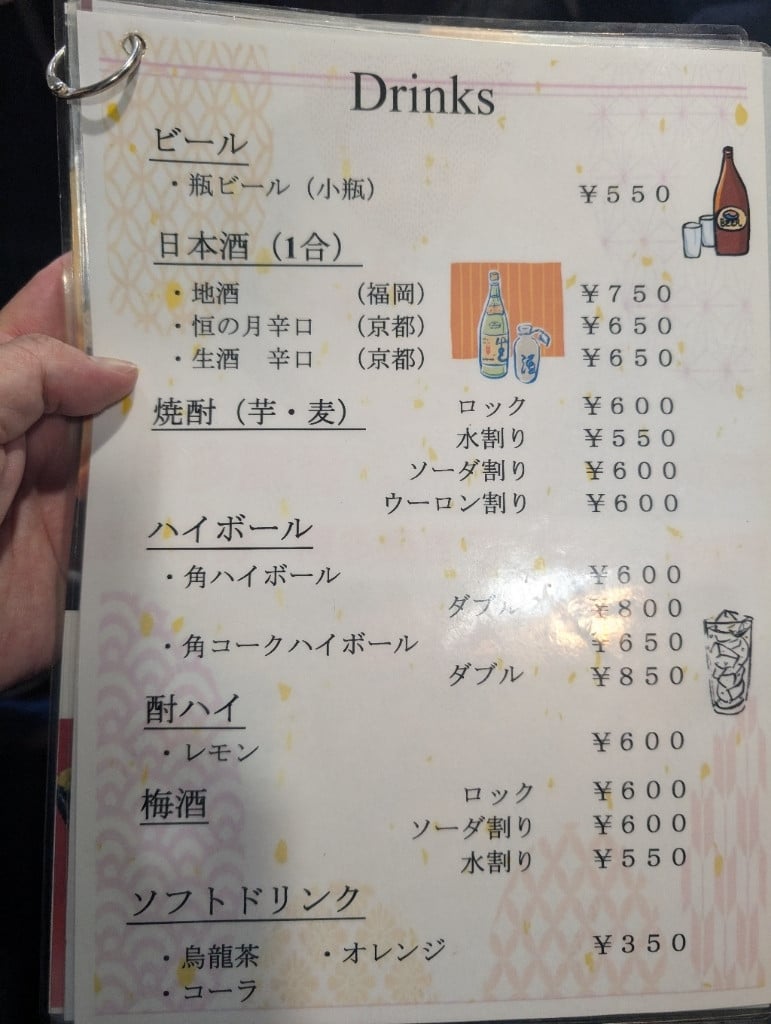 Drinks
ビール
・瓶ビール（小瓶） ￥５５０
日本酒（1合）
・地酒 （福岡） ￥７５０
・恒の月辛口 （京都） ￥６５０
・生酒 辛口 （京都） ￥６５０
焼酎（芋・麦） ロック ￥６００
水割り ￥５５０
ソーダ割り ￥６００
ウーロン割り ￥６００
ハイボール
・角ハイボール ￥６００
ダブル ￥８００
・角コークハイボール ￥６５０
ダブル ￥８５０
酎ハイ
・レモン ￥６００
梅酒 ロック ￥６００
ソーダ割り ￥６００
水割り ￥５５０
ソフトドリンク
・烏龍茶 ・オレンジ ￥３５０
・コーラ
BEER
酒